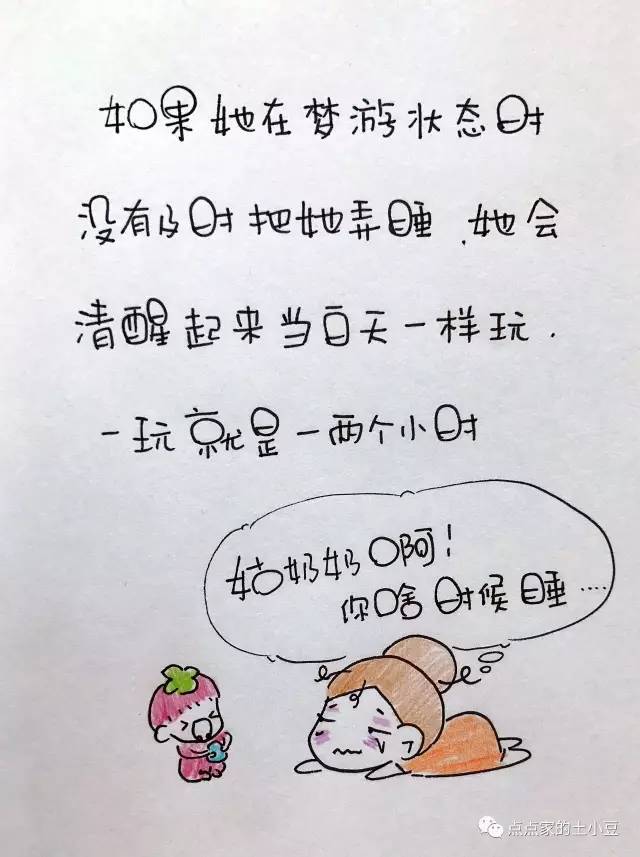 如果她在梦游状态时
没有及时把她弄睡,她会
清醒起来当白天一样玩.
一玩就是一两个小时
姑奶奶啊!
你啥时候睡……
点点家的土小豆